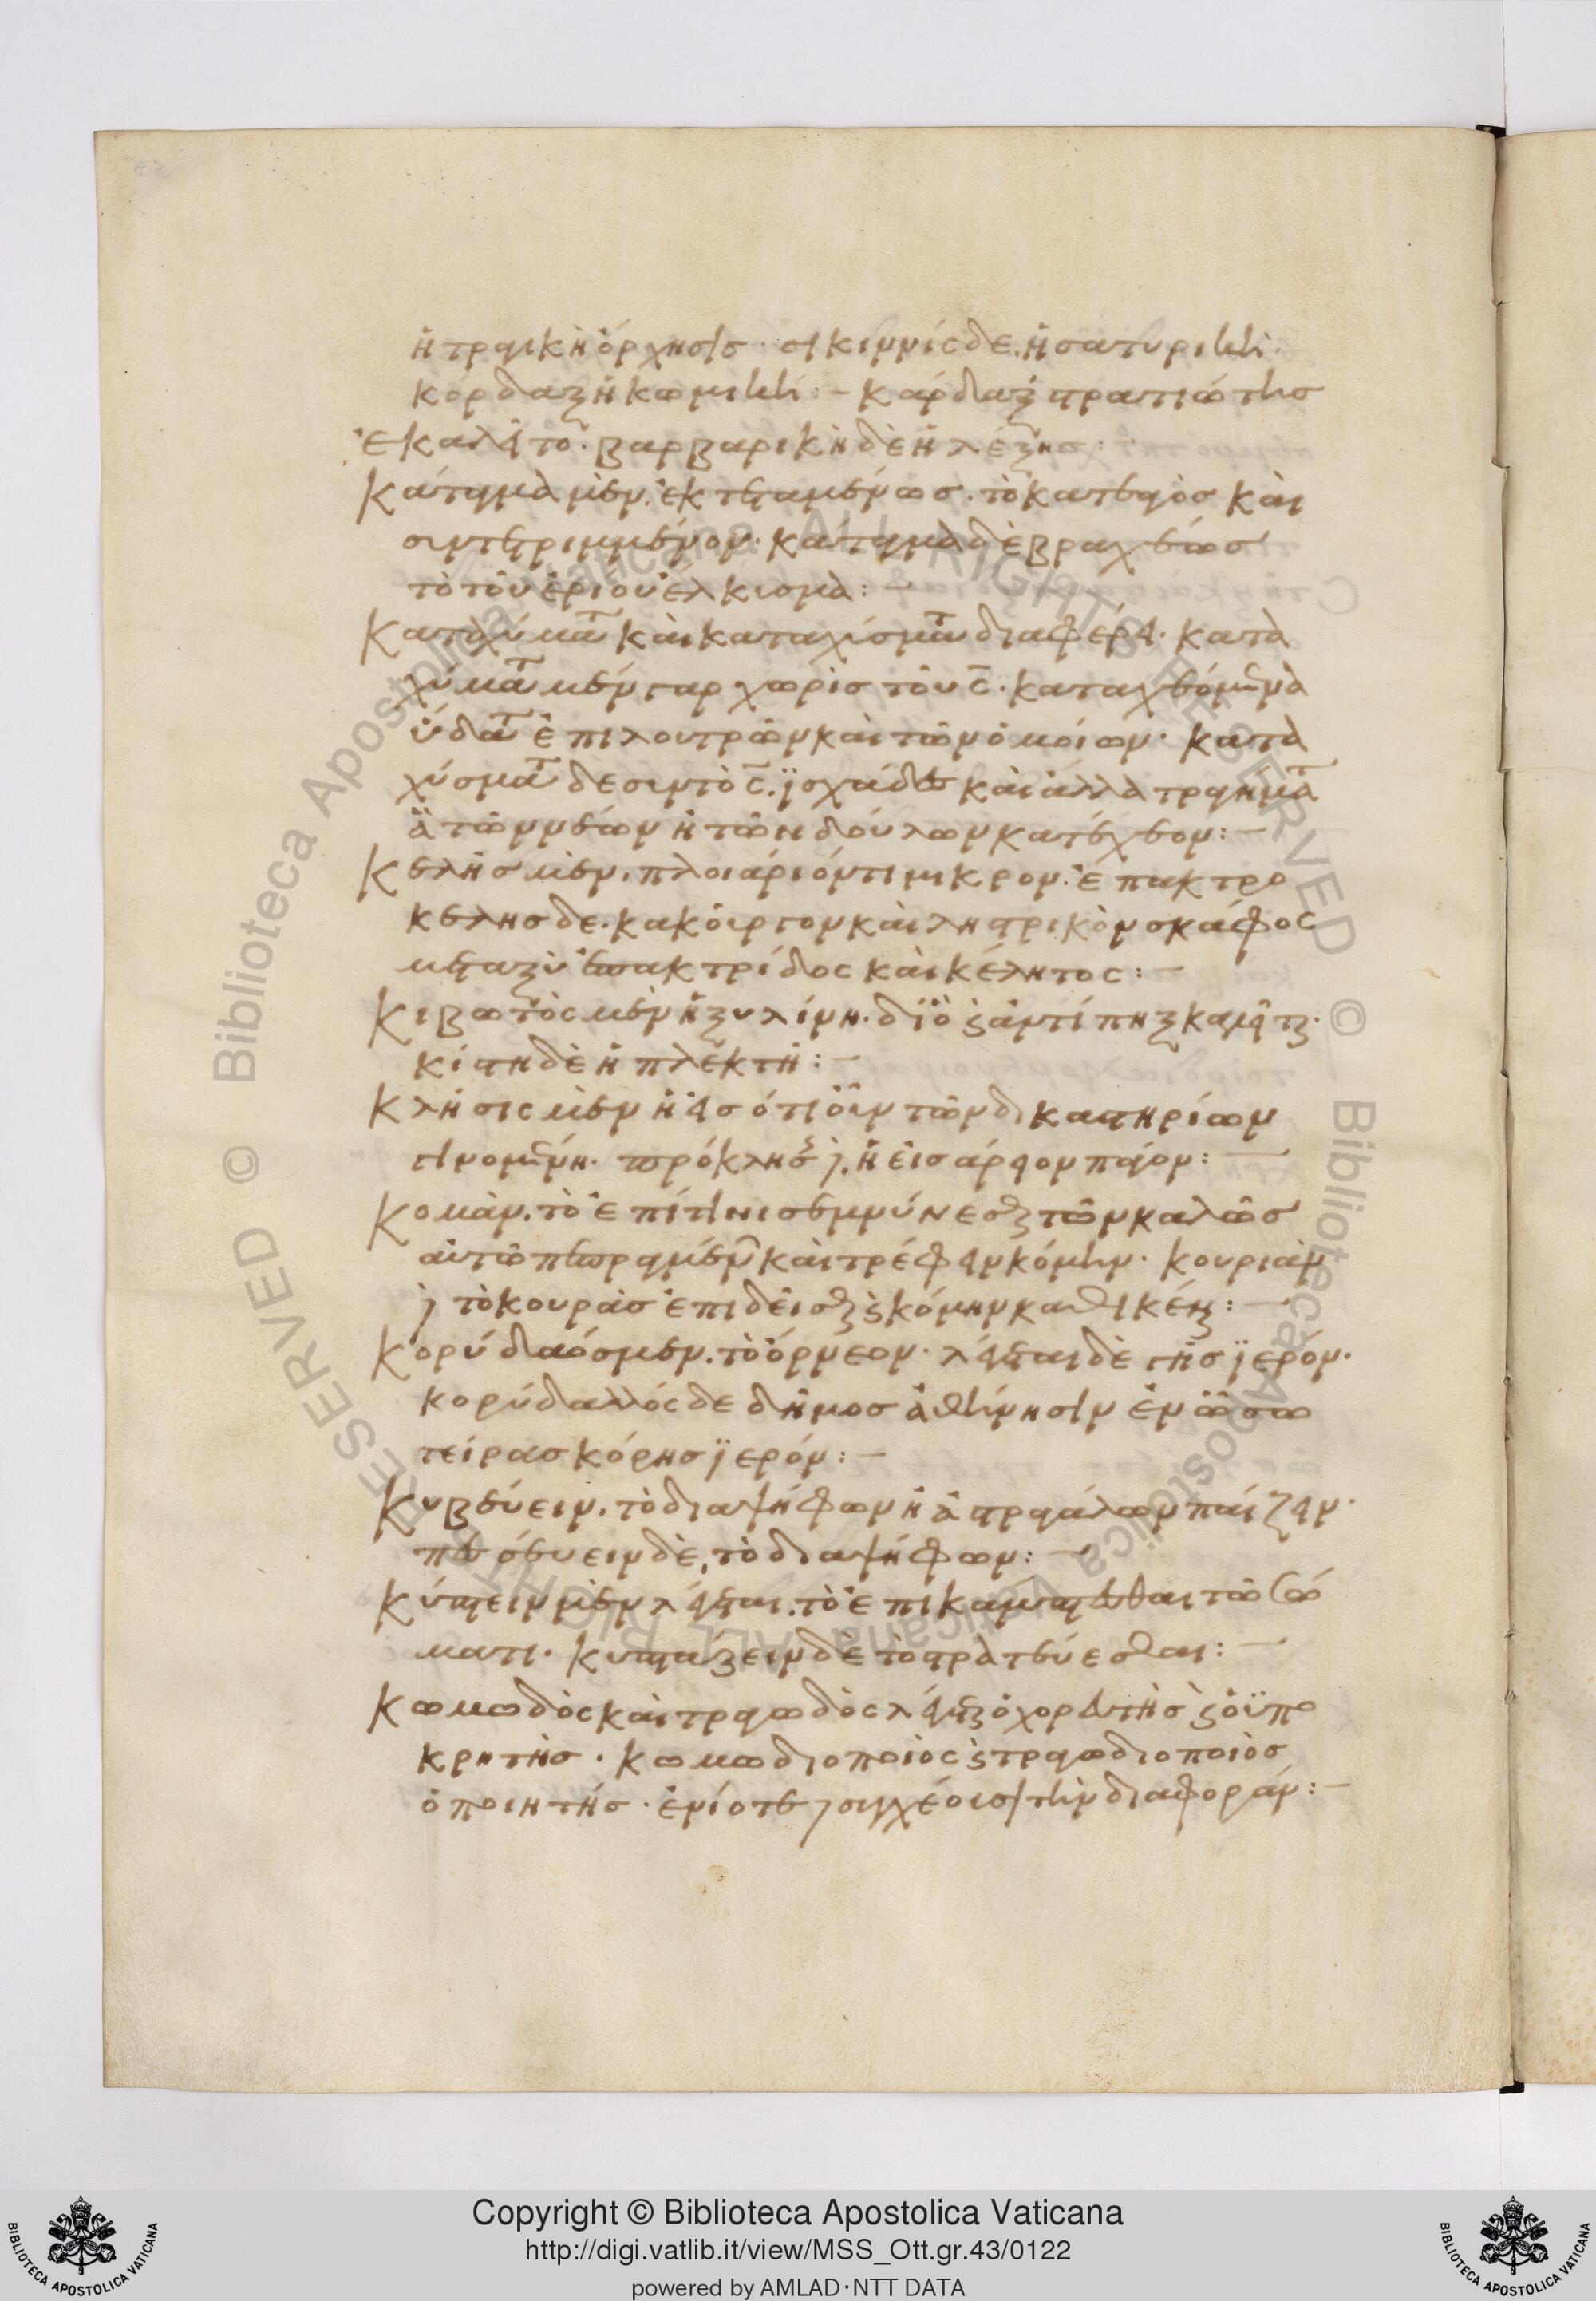 ἡ τραγικὴ ὄρχησις · σικιννίς δε. ἡ σατυρικὴ.
κορδαξ ἡ κωμικὴ :— κάρδαξ στρατιώτης
ἐκαλεῖτο. βαρβαρικὴ δὲ ἡ λέξησ :
Κάταγμα μὲν. ἐκτεταμένωσ. τὸ κατεαγὸσ καὶ
συντετριμμένον. κάταγμα δὲ βραχέωσ
τὸ τοῦ ἐρίου ἕλκισμα :—
Καταχύματα καὶ καταχύσματα διαφέρει. κατα
χύματα μὲν γαρ χωρὶσ τοῦ σ. καταχεόμενα
ὕδατα ἐπι λουτρῶν καὶ τῶν ὁμοίων. κατα
χύσματα δε συν τὸ σ. ϊσχάδασ καὶ ἄλλα τραγήματα
ἃ τῶν νέων ἢ τῶν δούλων κατέχεον :—
Κέλησ μὲν. πλοιάριόν τι μικρον. ἐπακτρο
κέλησ δε. κακοῦργον καὶ ληστρικὸν σκάφος
μεταξὺ ἐπακτρίδος καὶ κέλητος :—
Κιβωτὸς μὲν ἡ ξυλίνη. διὸ καὶ ἀντίπηξ καλεῖται.
κίστη δὲ ἡ πλεκτή :—
Κλῆσις μὲν ἡ εἰσ ὁτιοῦν τῶν δικαστηρίων
γινομένη. πρόκλησις δὲ. ἡ εἰσ ἄρειον πάγον :—
Κομᾶν. τὸ ἐπί τινι σεμνύνεσθαι τῶν καλῶσ
αὐτῶ πεπραγμένων καὶ τρέφειν κόμην. κουριᾶν
δὲ τὸ κουρᾶσ ἐπιδεῖσθαι καὶ κόμην καθεικέναι :—
Κορύδαοσ μεν. τὸ ὄρνεον. λέγεται δὲ γῆσ ϊερόν.
κορύδαλλός δε δῆμοσ ἀθήνησιν ἐν ὧ σω
τείρασ κόρησ ϊερόν :—
Κυβεύειν. τὸ δια ψήφων ἢ ἀστραγάλων παίζειν.
πεσσεύειν δὲ, τὸ δια ψήφων :—
Κύπτειν μὲν λέγεται. τὸ ἐπικάμπτεσθαι τῶ σώ
ματι. κυπτάζειν δὲ τὸ στρατεύεσθαι :—
Κωμωδὸς καὶ τραγωδὸς λέγεται ὁ χορευτὴσ καὶ ὁ ϋπο
κρητὴσ. κωμωδιοποιὸς καὶ τραγωδιοποιὸσ
ὁ ποιητήσ. ἐνίοτε δὲ συγχέουσι τὴν διαφοράν :—
Copyright © Biblioteca Apostolica Vaticana
http://digi.vatlib.it/view/MSS_Ott.gr.43/0122
powered by AMLAD·NTT DATA